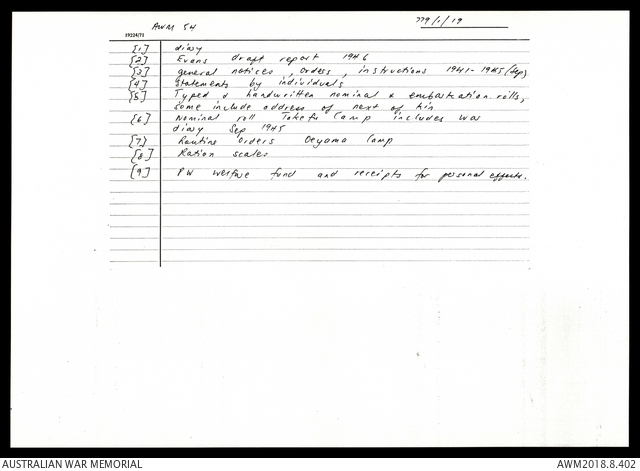 AWM 54
779/1/19
19224/71
[1] diary
[2] Evans draft report 1946
[3] general notices, orders, instructions 1941-1945 (Jap)
[4] Statements by individuals
[5] Typed & handwritten nominal & embarkation rolls,
some include address of next of kin
[6] Nominal roll Takefu Camp includes war
diary Sep 1945
[7] Routine Orders Oeyama Camp
[8] Ration scales
[9] PW welfare fund and receipts for personal effects.
AUSTRALIAN WAR MEMORIAL
AWM2018.8.402